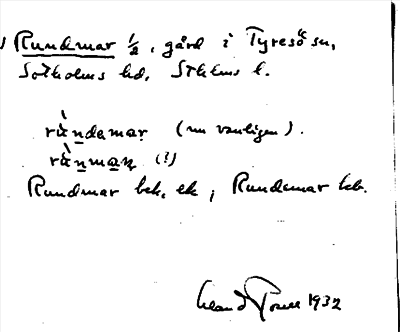 Rundmar 1/2, gård i Tyresö sn,
Sotholms hd, Sthlms l.
rùndamar (nu vanligen).
rùnmaṛ (?)
Rundmar bek. ek; Rundemar jeb.
1932